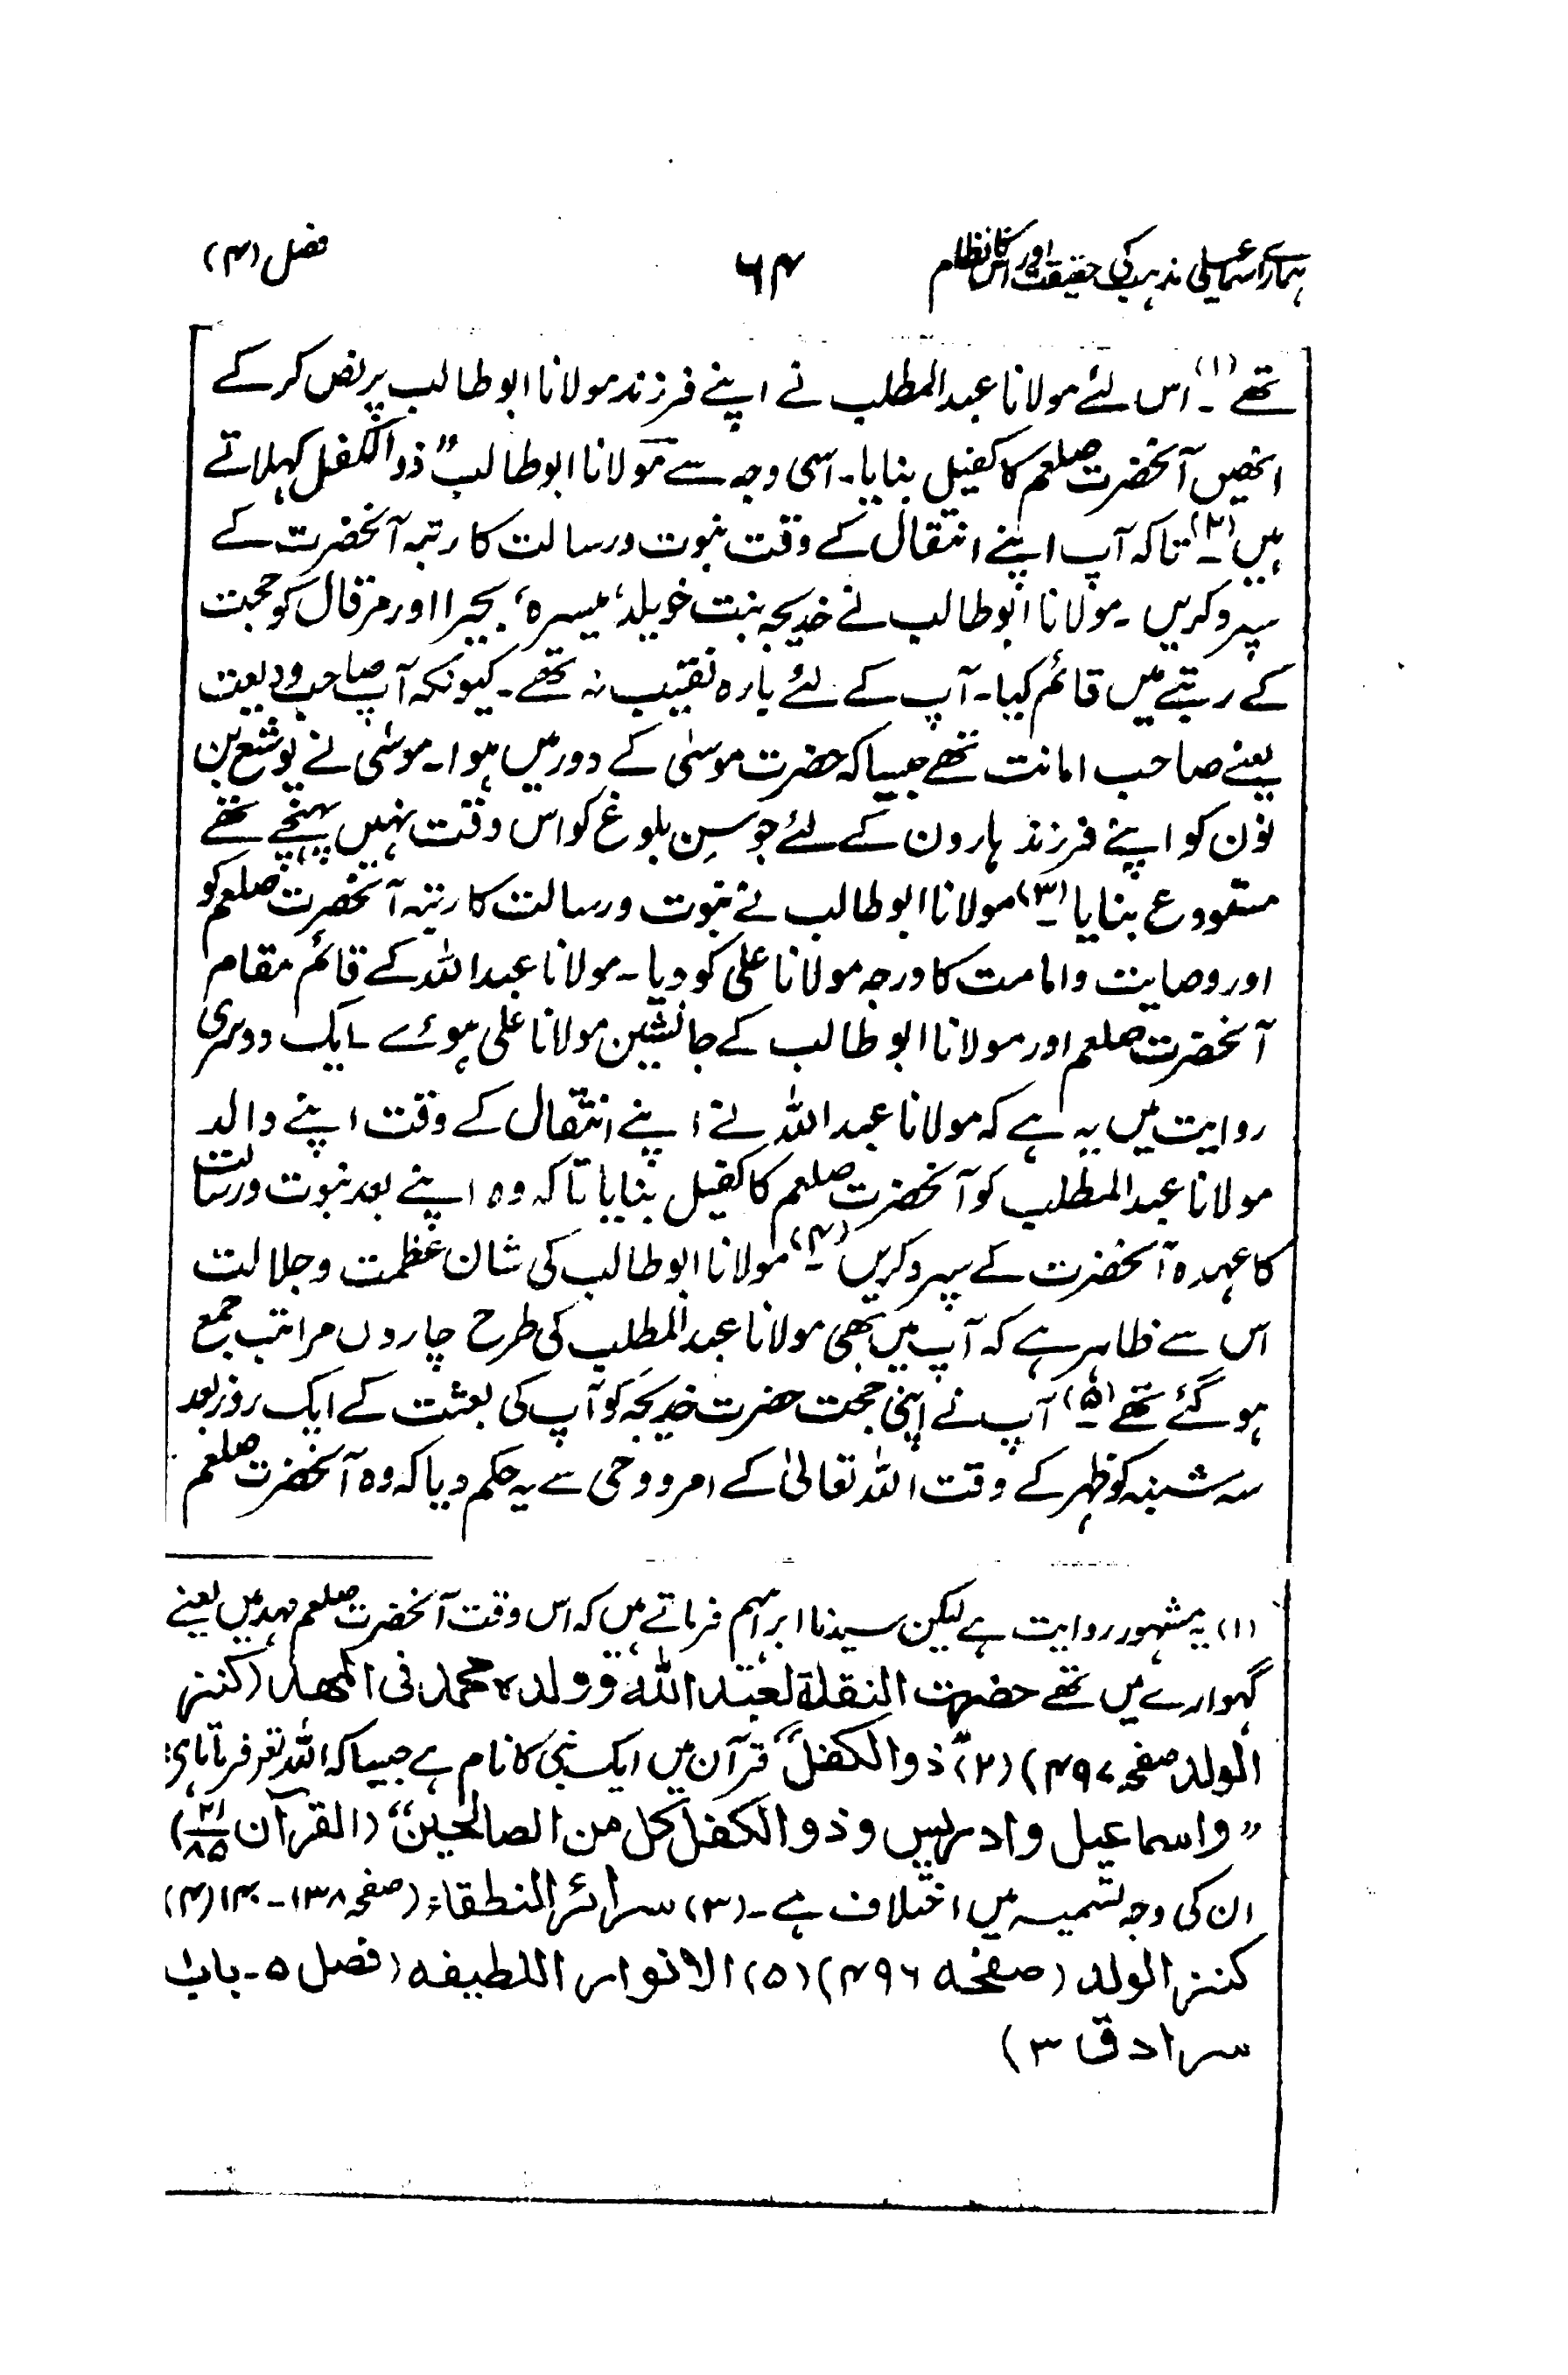 ہمارے اسماعیلی مذہب کی حقیقت اور اس کا نظام ۶۴ فصل (۴)
تھے (۱)۔ اس لئے مولانا عبدالمطلب نے اپنے فرزند مولانا ابو طالب پر نص کر کے
انھیں آنحضرت صلعم کا کفیل بنایا۔ اسی وجہ سے مولانا ابو طالب "ذو الکفل کہلاتے
ہیں (۲)۔ تاکہ آپ اپنے انتقال کے وقت نبوت و رسالت کا رتبہ آنحضرت کے
سپرد کریں۔ مولانا ابو طالب نے خدیجہ بنت خویلد، میسرہ، بحیرا اور مرقال کو حجت
کے رتبے میں قائم کیا۔ آپ کے لئے بارہ نقیب نہ تھے۔ کیونکہ آپ صاحب ودیعت
یعنے صاحب امانت تھے جیسا کہ حضرت موسیٰ کے دور میں ہوا۔ موسٰی نے یوشع بن
نون کو اپنے فرزند ہارون کے لئے جو سنِ بلوغ کو اس وقت نہیں پہنچے تھے
مستودع بنایا (۳)۔ مولانا ابو طالب نے نبوت و رسالت کا رتبہ آنحضرت صلعم کو
اور وصایت و امامت کا درجہ مولانا علی کو دیا۔ مولانا عبداللہ کے قائم مقام
آنحضرت صلعم اور مولانا ابو طالب کے جانشین مولانا علی ہوئے۔ ایک دوسری
روایت میں یہ ہے کہ مولانا عبداللہ نے اپنے انتقال کے وقت اپنے والد
مولانا عبدالمطلب کو آنحضرت صلعم کا کفیل بنایا تاکہ وہ اپنے بعد نبوت و رسالت
کا عہدہ آنحضرت کے سپرد کریں (۴)۔ مولانا ابو طالب کی شان عظمت و جلالت
اس سے ظاہر ہے کہ آپ میں بھی مولانا عبدالمطلب کی طرح چاروں مراتب جمع
ہو گئے تھے (۵)۔ آپ نے اپنی حجت حضرت خدیجہ کو آپ کی بعثت کے ایک روز بعد
سہ شنبہ کو ظہر کے وقت اللہ تعالیٰ کے امر و وحی سے یہ حکم دیا کہ وہ آنحضرت صلعم
(۱) یہ مشہور روایت ہے لیکن سیدنا ابراہیم فرماتے ہیں کہ اس وقت آنحضرت صلعم مہد میں یعنے
گہوارے میں تھے حضرت النقلۃ لعبد اللہ وولدہ محمد فی المھد (کنز
الولد صفحہ ۴۹۷) (۲) "ذو الکفل" قرآن میں ایک نبی کا نام ہے جیسا کہ اللہ تعہ فرماتا ہی:
"واسماعیل وادریس وذو الکفل کل من الصالحین" (القرآن ۲۱/۸۵)
ان کی وجہ تسمیہ میں اختلاف ہے۔ (۳) سرائر النطقاء (صفحہ ۱۳۸-۱۴۰) (۴)
کنز الولد (صفحہ ۴۹۶) (۵) الانوار اللطیفہ (فصل ۵۔ باب ۱
سرادق ۳)